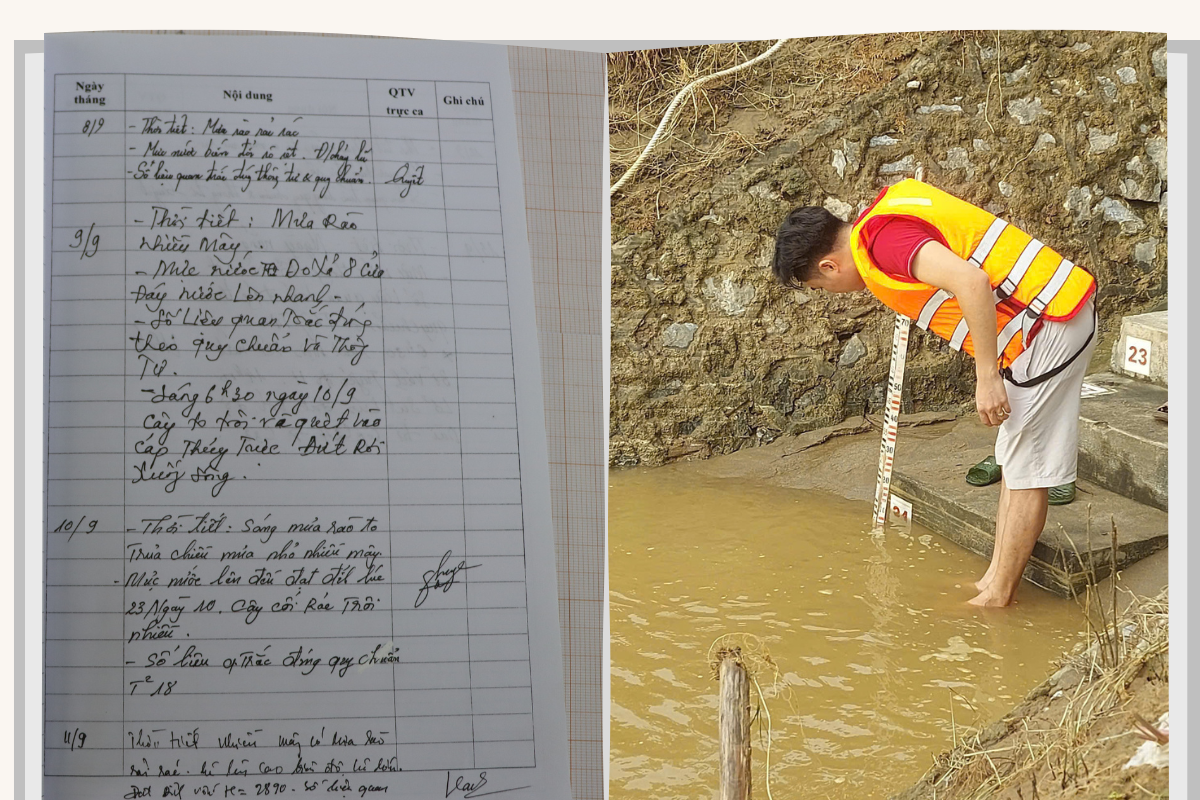 Ngày tháng
Nội dung
QTV trực ca
Ghi chú
8/9
- Thời tiết: Mưa rào rải rác
- Mực nước biến đổi rõ rệt.
- Số liệu quan trắc đúng thông tư & quy chuẩn.
9/9
- Thời tiết: Mưa Rào
nhiều Mây.
- Mực nước Đo Xả 8 Cửa
Đáy nước Lên nhanh -
- Số Liệu quan Trắc đúng
theo quy chuẩn và Thông
Tư.
- Sáng 6h30 ngày 10/9
cây to trôi và quét vào
cáp Thủy Trực Đứt Rơi
Xuống sông.
10/9
- Thời tiết: Sáng mưa rào to
Trưa chiều mưa nhỏ nhiều mây.
- Mực nước lên đều đạt đỉnh lúc
23 Ngày 10. Cây cối Rác Trôi
nhiều.
- Số liệu q Trắc đúng quy chuẩn
T² 18
11/9
Thời tiết nhiều mây có mưa rào
rải rác. lũ lên cao
H= 2890. Số liệu quan
70
23
24